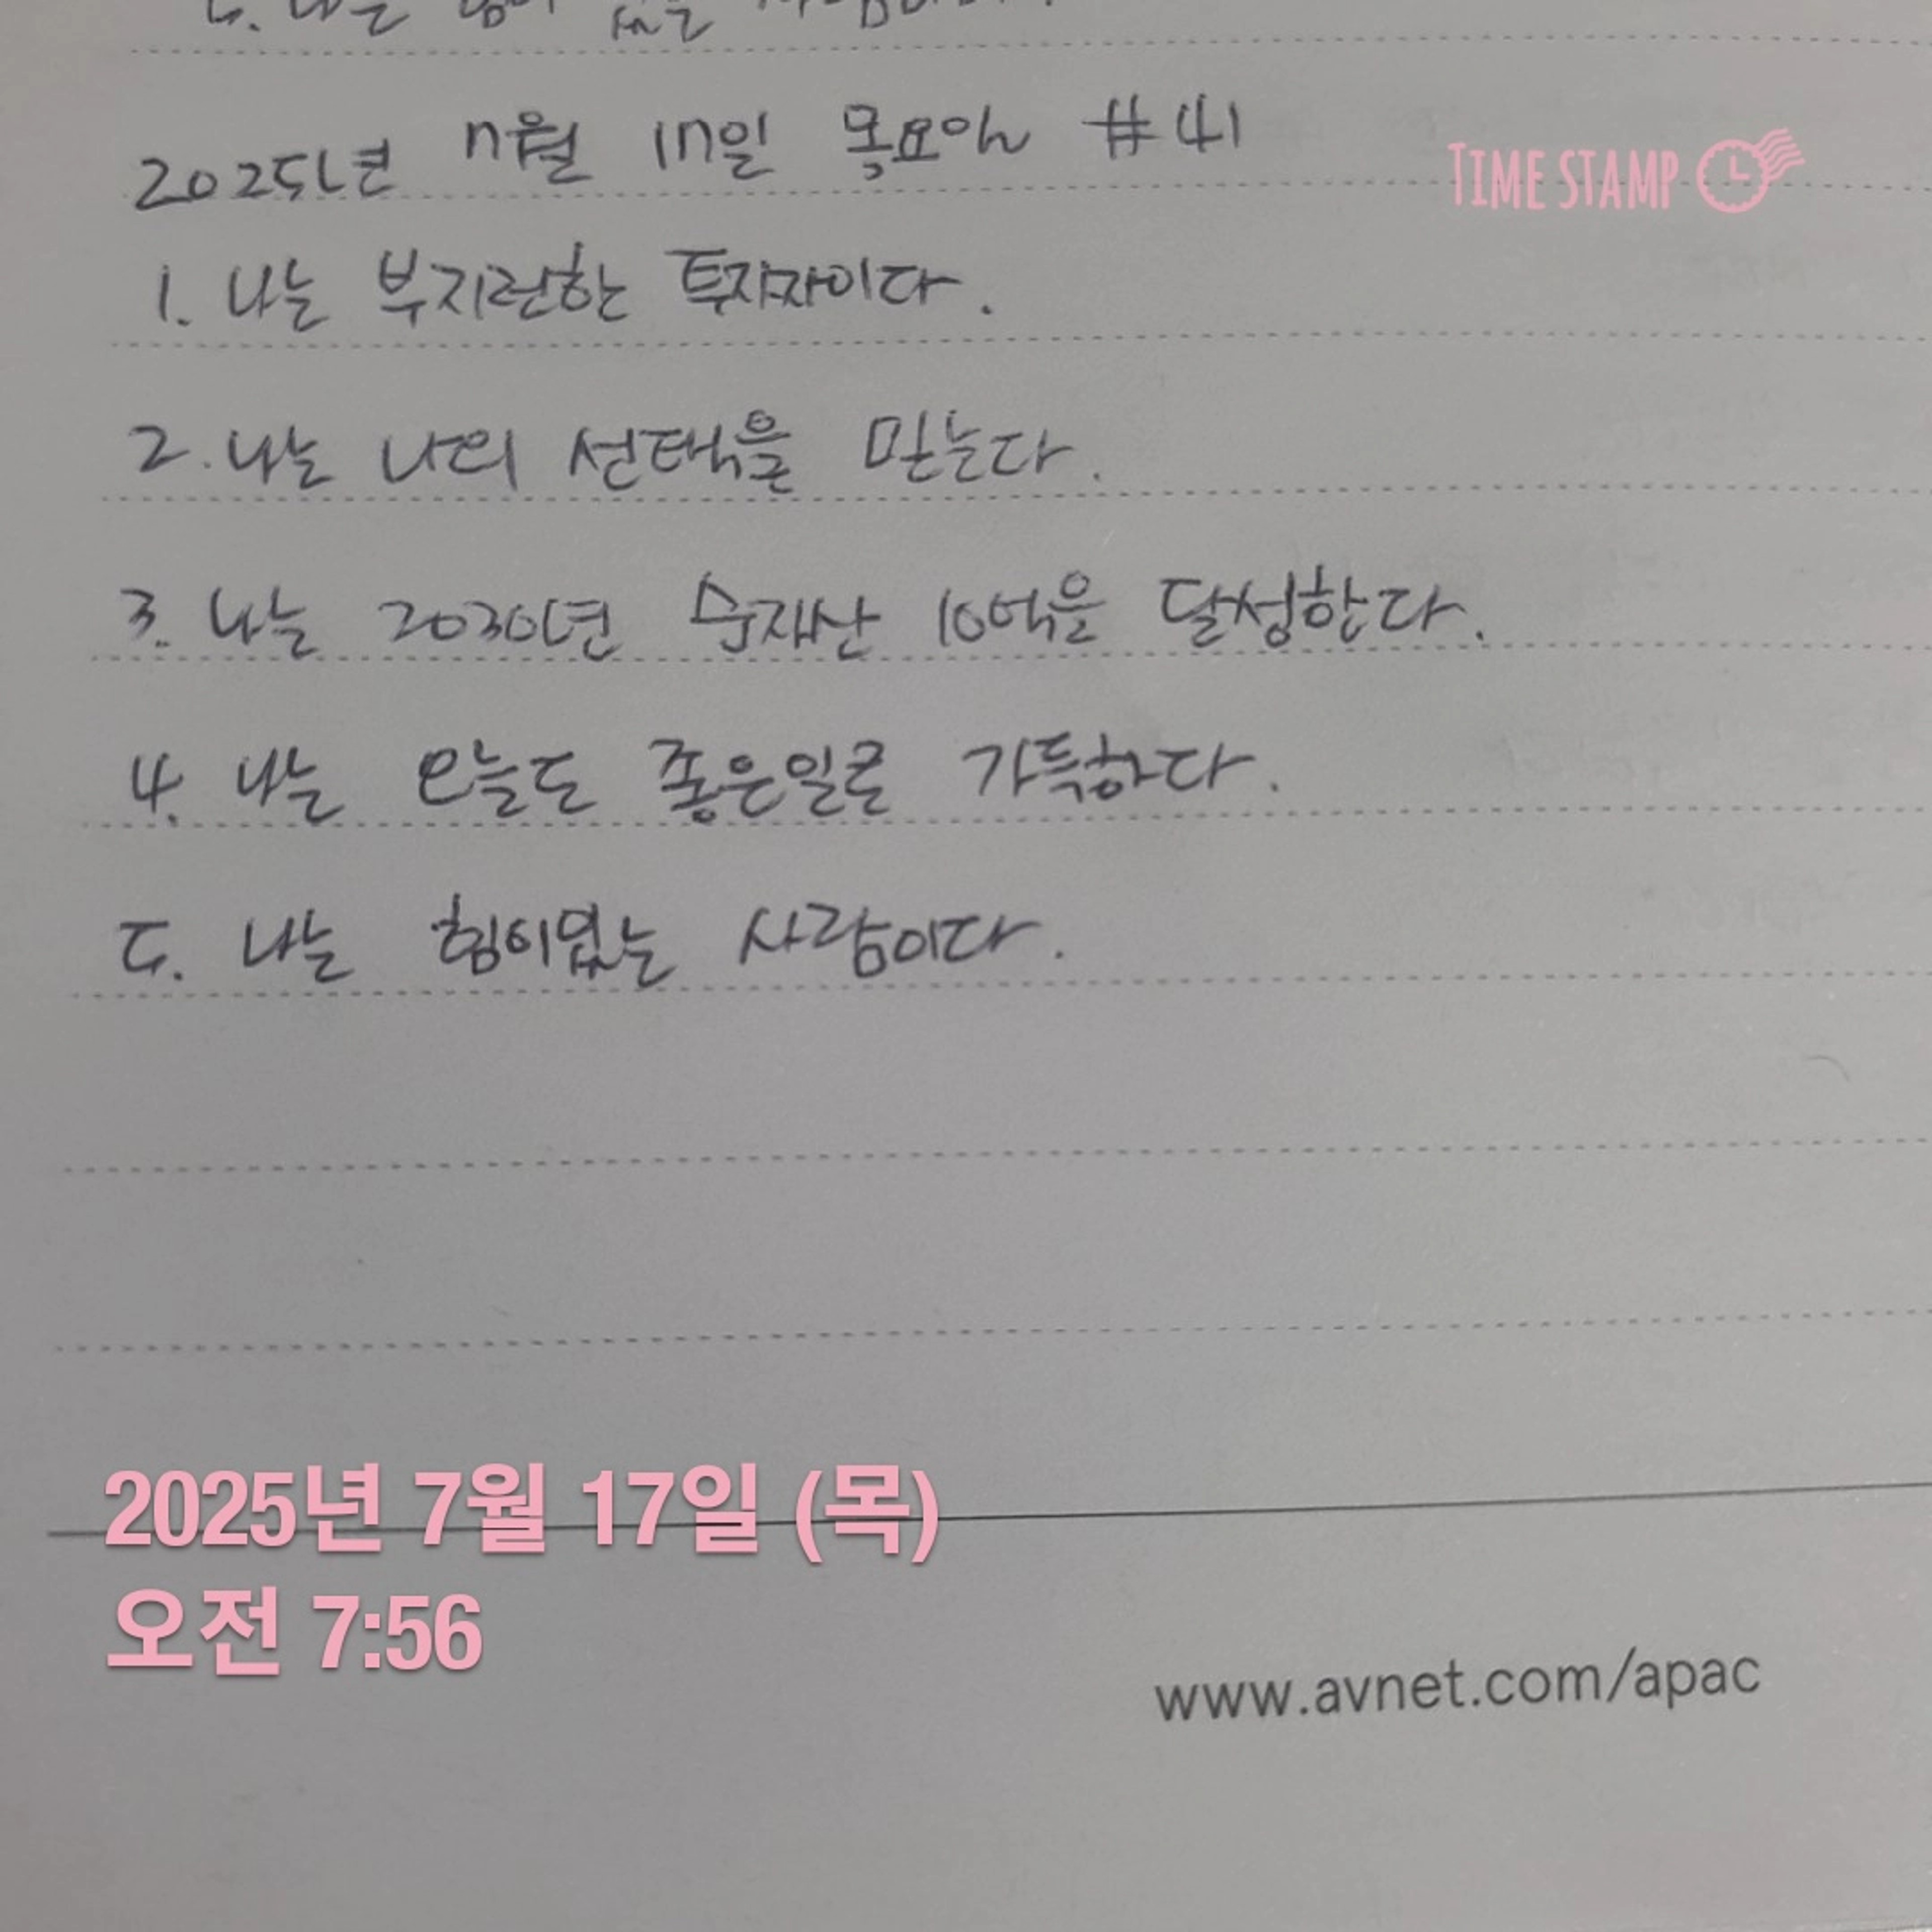 5. 나는 힘이 있는 사람이다.
2025년 7월 17일 목요일 #41
TIME STAMP
1. 나는 부지런한 투자자이다.
2. 나는 나의 선택을 믿는다.
3. 나는 2030년 순재산 10억을 달성한다.
4. 나는 오늘도 좋은일로 가득하다.
5. 나는 힘이없는 사람이다.
2025년 7월 17일 (목)
오전 7:56
www.avnet.com/apac